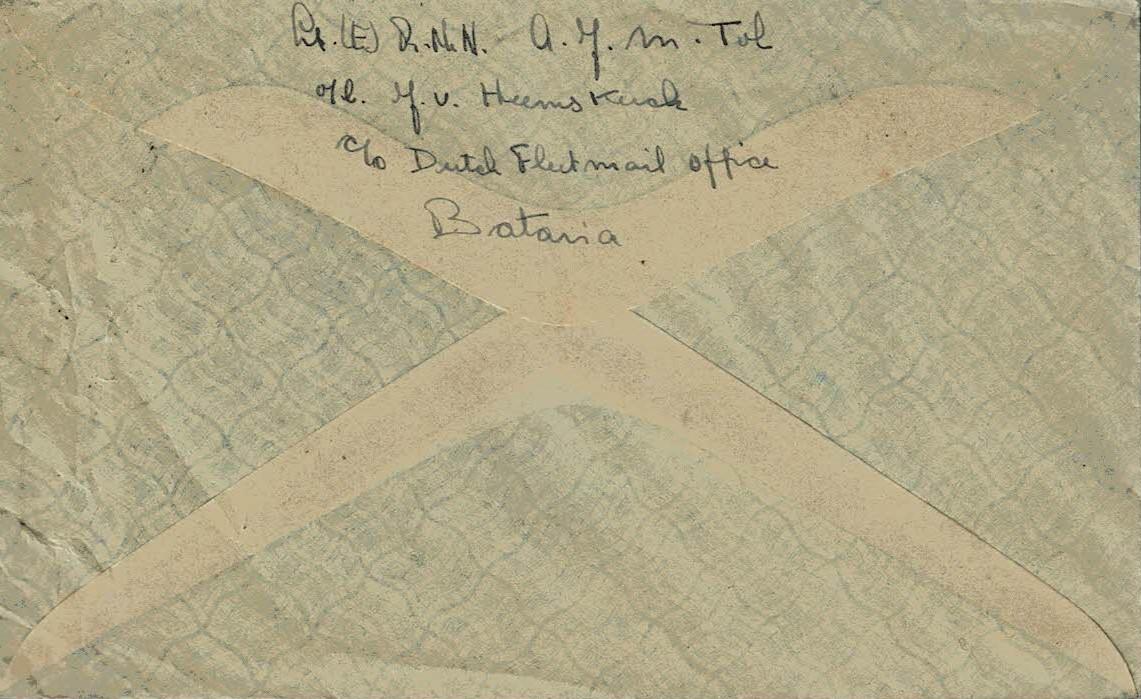 Lt. (E) R.N.N. A. J. M. Tol
o/b. J. v. Heemskerck
c/o Dutch Fleetmail office
Batavia